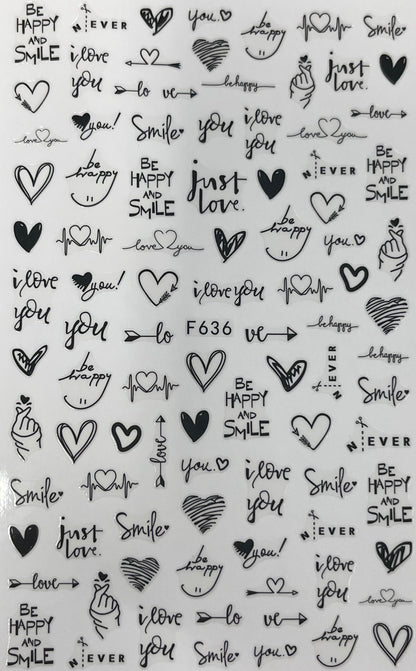 BE
HAPPY
AND
SMILE
NEVER
you.
be
happy
Smile
i love
you
just
love.
lo ve
behappy
love
love you
you!
Smile
you
i love
you
love you
be
happy
BE
HAPPY
AND
SMILE
just
love.
NEVER
BE
HAPPY
AND
SMILE
love you
be
happy
you.
i love
you
you!
i love you
you
lo
F636
ve
behappy
be
happy
NEVER
behappy
BE
HAPPY
AND
SMILE
Smile
love
NEVER
Smile
you.
i love
you
Smile
BE
HAPPY
AND
SMILE
just
love.
Smile
NEVER
love
be
happy
you!
i love
you
love you
BE
HAPPY
AND
SMILE
NEVER
i love
you
lo ve
Smile
you.
be
happy